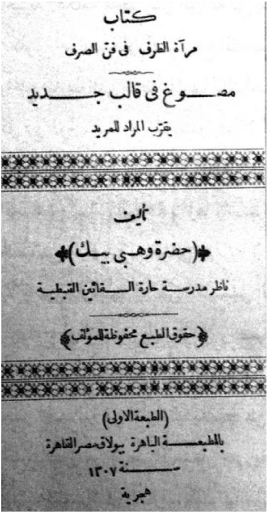 كتاب
مرآة الظرف فى فنّ الصرف
مصوغ فى قالب جديد
يقرّب المراد للمريد
تأليف
(حضرة وهبى بيك)
ناظر مدرسة حارة السقائين القبطية
(حقوق الطبع محفوظة للمؤلف)
(الطبعة الاولى)
بالمطبعة الباهرة ببولاق مصر القاهرة
سنة ١٣٠٧
هجرية